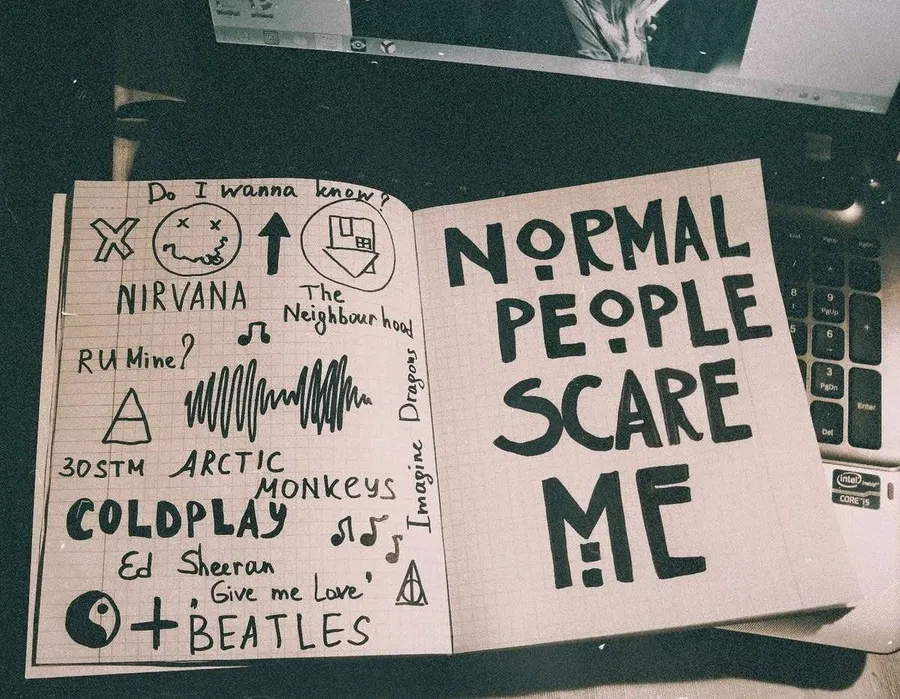 Do I wanna know?
NIRVANA
The
Neighbourhood
R U Mine?
30STM
ARCTIC
MONKEYS
Imagine Dragons
COLDPLAY
Ed Sheeran
‚Give me Love'
+ BEATLES
NORMAL
PEOPLE
SCARE
ME
9
PgUp
6
3
PgDn
Enter
Del
intel
CORE i5